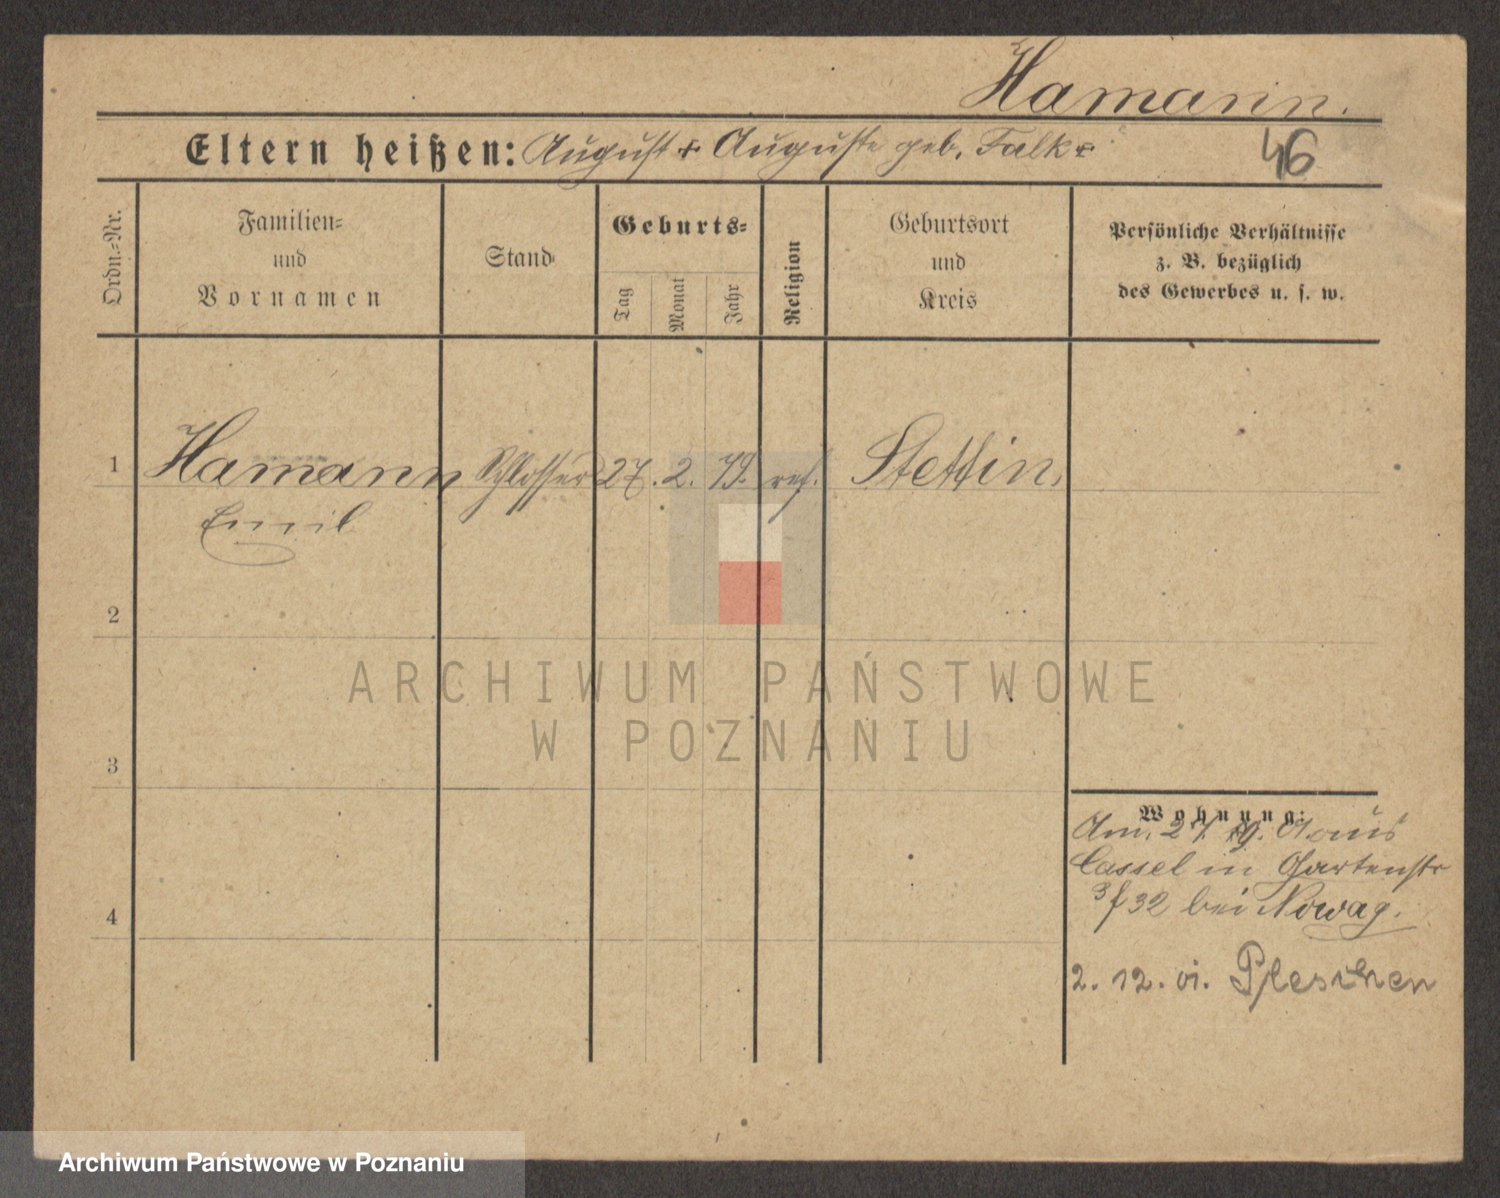 Hamann.
Eltern heißen: August + Auguste geb. Falk +
46
Ordn.-Nr.
Familien-
und
Vornamen
Stand
Geburts-
Tag
Monat
Jahr
Religion
Geburtsort
und
Kreis
Persönliche Verhältnisse
z. B. bezüglich
des Gewerbes u. s. w.
1 Hamann Schlosser 27. 2. 79. ref. Stettin.
Emil
2
ARCHIWUM PAŃSTWOWE
W POZNANIU
3
Wohnung:
Am. 27. aus
Cassel in Gartenstr
32 bei Nowag.
4
2. 12. 01. Pleschen
Archiwum Państwowe w Poznaniu